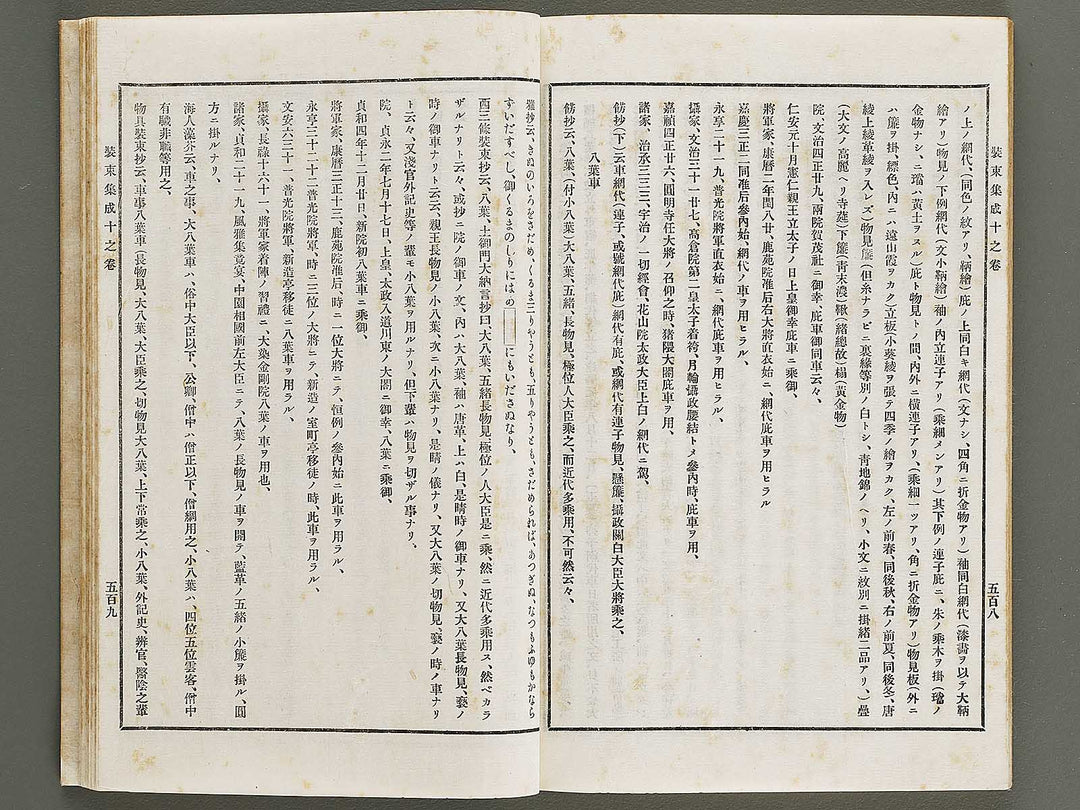 裝束集成十之卷
五百八
ノ上ノ網代、(同色ノ紋アリ、鞆繪)庇ノ上同白キ網代(文ナシ、四角ニ折金物アリ)袖同白網代(漆書ヲ以テ大鞆
繪アリ)物見ノ下例網代(文小鞆繪)袖ノ內立連子アリ(乘細メンアリ)其下例ノ連子庇ニ、朱ノ乘木ヲ掛(璫ノ
金物ナシ、ニ璫ハ黃土ヲヌル)庇ト物見トノ間、內外ニ橫連子アリ、(乘細一ツアリ、角ニ折金物アリ)物見板(外ニ
ハ簾ヲ掛縹色、內ニハ遠山霞ヲカク立板小葵綾ヲ張テ四季ノ繪ヲカク、左ノ前春、同後秋、右ノ前夏、同後冬、唐
綾上綾革綾ヲ入レズ)物見簾(但糸ナラビニ裏緣等別ノ白トシ、靑地錦ノヘリ、小文ニ紋別ニ掛緒二品アリ、)疊
(大文ノ高麗ヘリ寺莚)下簾(靑末濃)鞦(緒總故)榻(黃金物)
院、文治四正廿九、兩院賀茂社ニ御幸、庇車御同車云々、
仁安元十月憲仁親王立太子ノ日上皇御幸庇車ニ乘御、
將軍家、康曆二年閏八廿、鹿苑院准后右大將直衣始ニ、網代庇車ヲ用ヒラル
嘉慶三正二同准后參內始、網代ノ車ヲ用ヒラル、
永享二十一九、普光院將軍直衣始ニ、網代庇車ヲ用ヒラル、
攝家、文治三十一廿七、高倉院第二皇太子着袴、月輪攝政腰結トメ參內時、庇車ヲ用、
嘉禎四正廿六、圓明寺任大將ノ召仰之時、猪隈大閤庇車ヲ用、
諸家、治承三三三、宇治ノ一切經會、花山院太政大臣上白ノ網代ニ駕、
餝抄(下)云車網代(連子、或號網代庇)網代有庇、或網代有連子物見、懸簾、攝政關白大臣大將乘之、
八葉車
餝抄云、八葉、(付小八葉)大八葉、五緖、長物見、極位人大臣乘之、而近代多乘用、不可然云々、
裝束集成十之卷
五百九
雅抄云、きぬのいろをさだめ、くるま三りやうとも、五りやうとも、さだめられば、あつぎぬ、なつもふゆもかなら
ずいだすべし、御くるまのしりにはの にもいださぬなり、
酉三條裝束抄云、八葉、土御門大納言抄曰、大八葉、五緖長物見、極位ノ人大臣是ニ乘、然ニ近代多乘用ス、然ベカラ
ザルナリト云々、或抄ニ院ノ御車ノ文、內ハ大八葉、袖ハ唐革、上ハ白、是晴時ノ御車ナリ、又大八葉長物見、褻ノ
時ノ御車ナリト云云、親王長物見ノ小八葉、次ニ小八葉ナリ、是晴ノ儀ナリ、又大八葉ノ切物見、褻ノ時ノ車ナリ
ト云々、又淺官外記史等ノ輩モ小八葉ヲ用ルナリ、但下輩ハ物見ヲ切ザル事ナリ、
院、貞永二年七月十七日、上皇、太政入道川東ノ大閤ニ御幸、八葉ニ乘御、
貞和四年十二月廿日、新院初八葉車ニ乘御、
將軍家、康曆三正十三、鹿苑院准后、時ニ一位大將ニテ、恒例ノ參內始ニ此車ヲ用ラル、
永享三十二十二普光院將軍、時ニ三位ノ大將ニテ、新造ノ室町亭移徒ノ時、此車ヲ用ラル、
文安六三十一、普光院將軍、新造亭移徒ニ八葉車ヲ用ラル、
攝家、長祿十六十一、將軍家着陣ノ習禮ニ、大染金剛院八葉ノ車ヲ用也、
諸家、貞和二十一九、風雅集竟宴、中園相國前左大臣ニテ、八葉ノ長物見ノ車ヲ閞テ、藍革ノ五緖ノ小簾ヲ掛ル、圓
方ニ掛ルナリ、
海人藻芥云、車之事、大八葉車ハ、俗中大臣以下、公卿、僧中ハ僧正以下、僧綱用之、小八葉ハ、四位五位雲客、僧中
有職非職等用之、
物具裝束抄云、車事八葉車(長物見、大八葉、大臣乘之、切物見大八葉、上下常乘之、小八葉、外記史、辨官、醫陰之輩